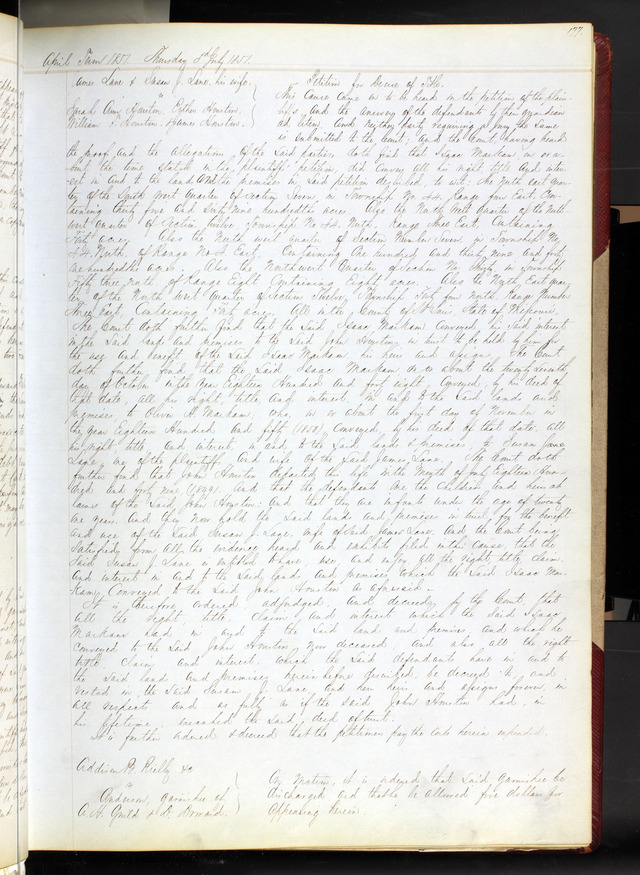 177
April Term 1851. Thursday 3rd July 1851.
James Lane & Susan J. Lane, his wife.
vs
Sarah Ann Houston, Esther Houston,
William F. Houston, James Houston.
Petition for Decree of Title.
This Cause came on to be heard on the petition of the plain-
tiffs and the answer of the defendants by their guardian
ad litem and neither party requiring a jury the same
is submitted to the Court; And the Court having heard
the proof and the allegations of the said parties doth find that Isaac Markam on or a-
bout the time stated in the plaintiffs' petition, did convey all his right title and inter-
est in and to the land and the premises in said petition described, to wit: The North East quar-
ter of the South West Quarter of Section Seven, in Township No. 44. Range four East, Con-
taining thirty five and hundredths acres. Also the North West Quarter of the North
west quarter of Section Twelve Township No 44. North, Range three East, Containing
Forty acres. Also the North west quarter of Section Number Seven, in Township No.
44. North, of Range No 4 East, Containing one hundred and thirty nine and forty
one hundredths acres. Also the Northwest Quarter of Section No. in Township
Forty three, North, of Range Eight Containing Eighty acres. Also the North East quar-
ter of the North West Quarter of Section Twelve, Township Forty four North, Range Number
Three East, Containing Forty acres. All in the County of St Louis, State of Missouri.
The Court doth further find that the said Isaac Markam conveyed his said interest
in the said lands and premises to the said John Houston in trust to be held by him for
the use and benefit of the said Isaac Markam his heirs and assigns. The Court
doth further find that the said Isaac Markam on or about the twenty seventh
day of October in the year Eighteen Hundred and forty eight conveyed, by his deed of
that date, all his right, title and interest, in and to the said lands and
premises to Olivia H. Markam; who, on or about the first day of November in
the year Eighteen Hundred and fifty (1850) conveyed, by her deed of that date, all
her right, title and interest, in and to the said lands & premises, to Susan Jane
Lane, one of the plaintiffs and wife of the said James Lane. The Court doth
further find that John Houston departed this life in the Month of July Eighteen Hun-
dred and forty nine (1849) and that the defendants are the children and heirs at
law of the said John Houston: and that they are infants under the age of twenty
one years. And they now hold the said land and premises in trust for the benefit
and use of the said Susan J. Lane, wife of said James Lane. And the Court being
satisfied from all the evidence heard and exhibits filed in this Cause, that the
said Susan J. Lane is entitled to have, use and enjoy all the right title claim
and interest in and to the said lands and premises which the said Isaac Mar-
kam, conveyed to the said John Houston as aforesaid.
It is therefore ordered, adjudged and decreed, by the Court, that
all the right, title, claim and interest which the said Isaac
Markam had in and to the said land and premises and which he
conveyed to the said John Houston now deceased, and also all the right
title claim and interest which the said defendants have in and to
the said land and premises hereinbefore described, be decreed to, and
vested in the said Susan J. Lane, and her heirs and assigns forever, in
all respects and as fully as if the said John Houston had, in
his lifetime, executed the said deed of trust.
It is further ordered & decreed that the petitioners pay the costs herein expended.
Addison R. Reilly &c
vs
Anderson, garnishee of,
A. H. Guild & D. Doward.
On Motion, it is ordered that said garnishee be
discharged and that he be allowed five dollars for
appearing herein.